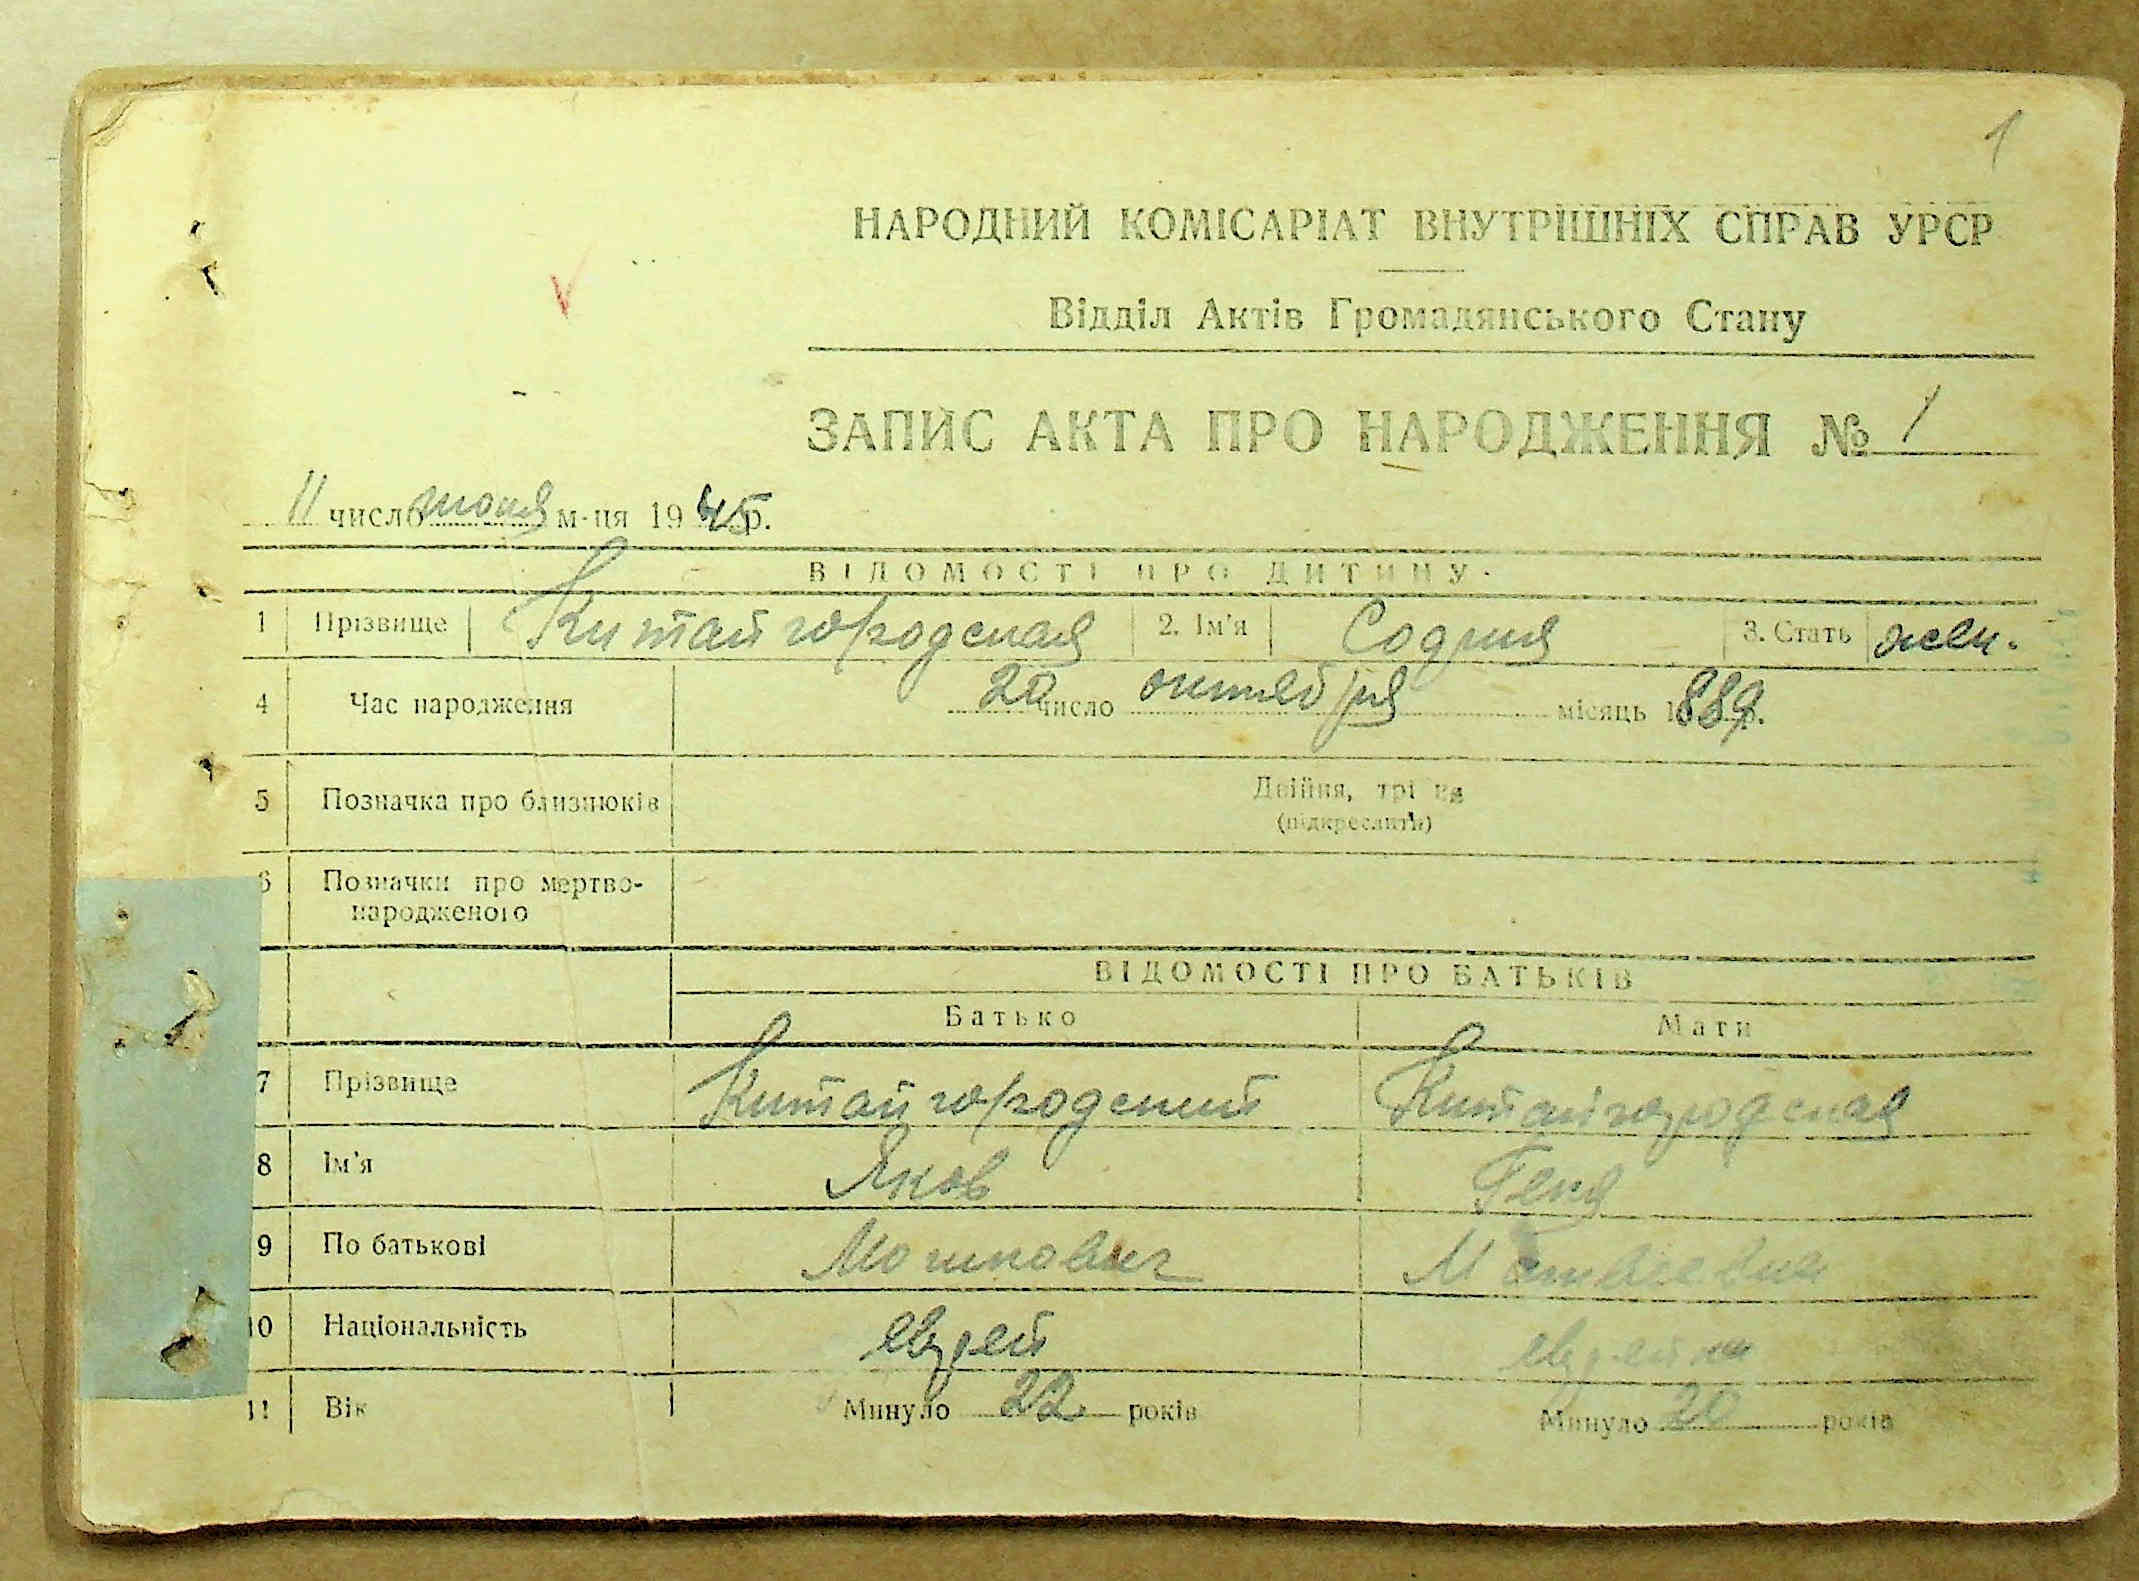 1
НАРОДНИЙ КОМІСАРІАТ ВНУТРІШНІХ СПРАВ УРСР
Відділ Актів Громадянського Стану
ЗАПИС АКТА ПРО НАРОДЖЕННЯ № 1
11 число июня м-ця 1945 р.
ВІДОМОСТІ ПРО ДИТИНУ.
1 Прізвище Китайгородская 2. Ім'я София 3. Стать жен.
4 Час народження 20 число октября місяць 1889 р.
5 Позначка про близнюків Двійня, трійня
(підкреслити)
6 Позначки про мертво-
народженого
ВІДОМОСТІ ПРО БАТЬКІВ
Батько Мати
7 Прізвище Китайгородский Китайгородская
8 Ім'я Яков Геня
9 По батькові Мошкович Матвеевна
10 Національність еврей еврейка
11 Вік Минуло 22 років Минуло 20 років